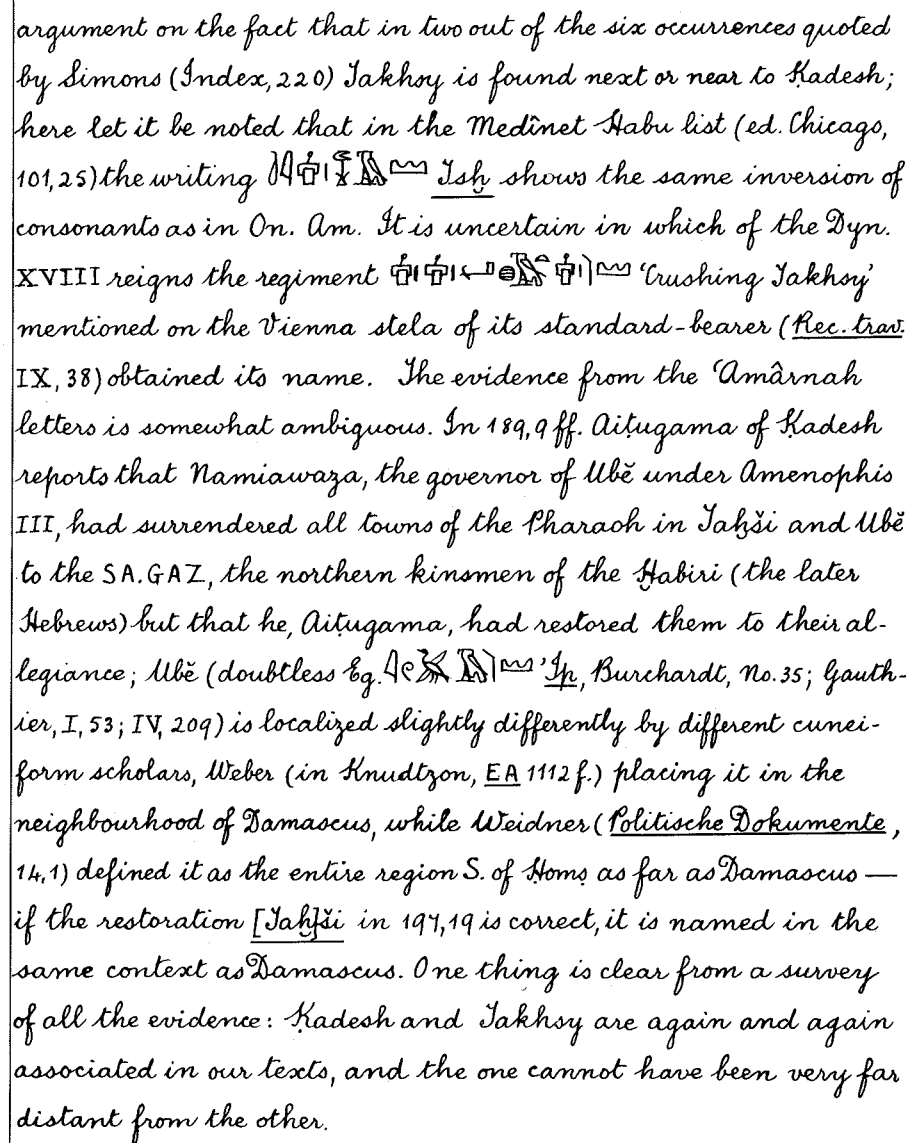 argument on the fact that in two out of the six occurrences quoted
by Simons (Index, 220) Takhsy is found next or near to Ḳadesh;
here let it be noted that in the Medînet Habu list (ed. Chicago,
101, 25) the writing Tsḫ shows the same inversion of
consonants as in On. Am. It is uncertain in which of the Dyn.
XVIII reigns the regiment 'Crushing Takhsy'
mentioned on the Vienna stela of its standard-bearer (Rec. trav.
IX, 38) obtained its name. The evidence from the ʿAmârnah
letters is somewhat ambiguous. In 189, 9 ff. Aiṭugama of Ḳadesh
reports that Namiawaza, the governor of Ubĕ under Amenophis
III, had surrendered all towns of the Pharaoh in Taḫši and Ubĕ
to the SA.GAZ, the northern kinsmen of the Ḫabiri (the later
Hebrews) but that he, Aiṭugama, had restored them to their al-
legiance; Ubĕ (doubtless Eg. 'Ip, Burchardt, No. 35; Gauth-
ier, I, 53; IV, 209) is localized slightly differently by different cunei-
form scholars, Weber (in Knudtzon, EA 1112 f.) placing it in the
neighbourhood of Damascus, while Weidner (Politische Dokumente,
14, 1) defined it as the entire region S. of Ḥomṣ as far as Damascus —
if the restoration [Taḫ]ši in 197, 19 is correct, it is named in the
same context as Damascus. One thing is clear from a survey
of all the evidence: Ḳadesh and Takhsy are again and again
associated in our texts, and the one cannot have been very far
distant from the other.